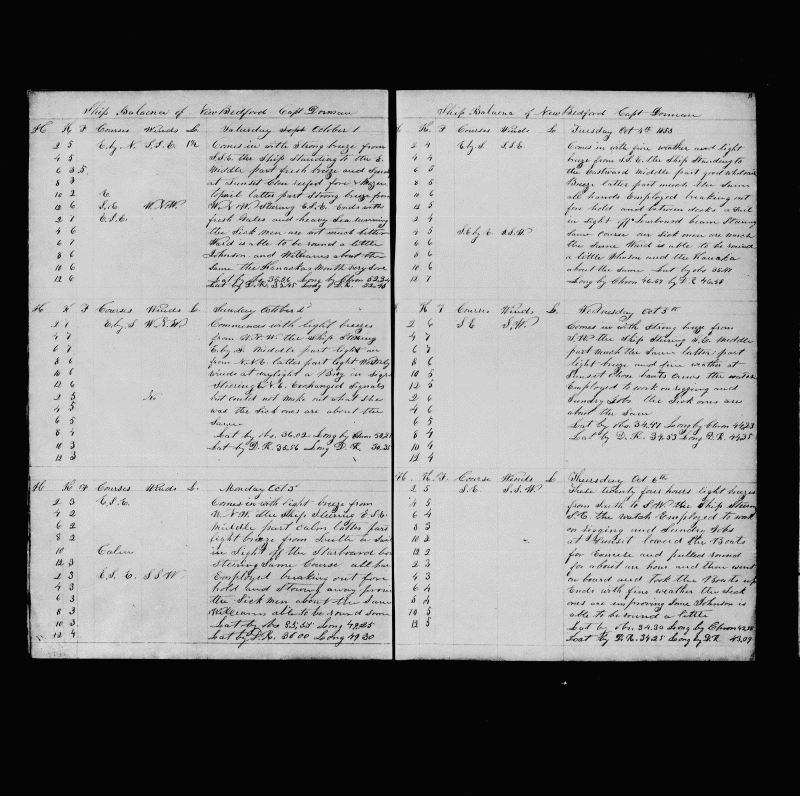 Ship Balaena of New Bedford Capt Dorman
H K F Courses Winds L. Saturday October 1
2 5 E by N. S.S.E. Comes in with Strong breeze from
4 5 S.S.E. the Ship Standing to the E.
6 3 5 Middle part fresh breeze and
8 3 at Sunset
10 2 E. latter part Strong breeze from
12 6 S.E. W.N.W W.N.W. Steering E.S.E. Ends with
2 7 E.S.E. fresh Gales and heavy Sea running
4 6 the Sick men are not much better
6 7 Ward is able to be round a little
8 6 Johnson and Williams about the
10 6 Same the Kanakas Mouth very Sore
12 6 Lat by obs 35,56 Long by Chron
Lat by D.R. Long D.R.
H K F Courses Winds L. Sunday October 2
2 1 E. by S W.N.W Commences with light breezes
4 7 from W.N.W. the Ship Steering
6 7 E. by S. Middle part light air
8 6 from N.N.E. latter part light
10 6 winds at daylight a Brig in Sight
12 6 Steering Exchanged Signals
2 5 but could not make out what She
4 5 was the Sick ones are about the
6 5 Same
8 4 Lat by obs. 36,02 Long by Chron
10 3 Lat by D.R. 35,56 Long D.R.
12 3
H K F Courses Winds L. Monday Oct 3
2 3 E.S.E. Comes in with light breeze from
4 2 the Ship Steering E.S.E.
6 2 Middle part Calm Latter part
8 2 light breeze from South a Sail
10 Calm in Sight off the Starboard bow
12 3 Steering Same Course all hands
2 3 E.S.E. S.S.W Employed breaking out fore
4 3 hold and Stowing away
6 3 the Sick men about the Same
8 3 Williams able to be round some
10 3 Lat by obs 35,55 Long 49,25
12 4 Lat by D.R. 36 00 Long 49 30
Ship Balaena of New Bedford Capt Dorman
H. F Courses Winds L Tuesday Oct 4th 1853
2 4 E by S. S.S.E. Comes in with fine weather and light
4 6 breeze from S.S.E. the Ship Standing to
6 5 the Eastward Middle part good wholesome
8 5 Breeze latter part much the Same
10 6 all hands Employed breaking out
12 5 fore hold and between decks a Sail
2 4 in Sight off Starboard beam Steering
4 5 S.E by E S.S.W Same course our Sick men are much
6 6 the Same Ward is able to be round
8 6 a little Johnson and the Kanaka
10 6 about the Same Lat by obs
12 7 Long by Chron 46,51 by D.R.
K F Courses Winds L. Wednesday Oct 5th
2 6 S E S.W. Comes in with Strong breeze from
4 7 S.W. the Ship Steering S.E. Middle
6 7 part much the Same latter part
8 6 light breeze and fine weather at
10 5 Sunset Chose boats crews the watch
12 5 Employed to work on rigging and
2 6 Sundry Jobs the Sick ones are
4 6 about the Same
6 5 Lat by obs. 34.47 Long by Chron 44,23
8 4 Lat by D.R. 34.53 Long D.R. 44,25
10 4
12 4
H. K. F. Course Winds L Thursday Oct 6th
2 5 S.E. S.S.W. These twenty four hours light breezes
4 5 from South to S.W. the Ship Steering
6 4 S.E. the watch Employed to work
8 3 on rigging and Sundry Jobs
10 2 at Sunset lowered the Boats
12 2 for Exercise and pulled round
2 3 for about an hour and then went
4 3 on board and took the Boats up
6 4 Ends with fine weather the Sick
8 4 ones are improving some Johnson is
10 5 able to be round a little
12 5 Lat by obs. 34.30 Long by Chron
Lat by D.R. 34 25 Long by D.R. 43,09